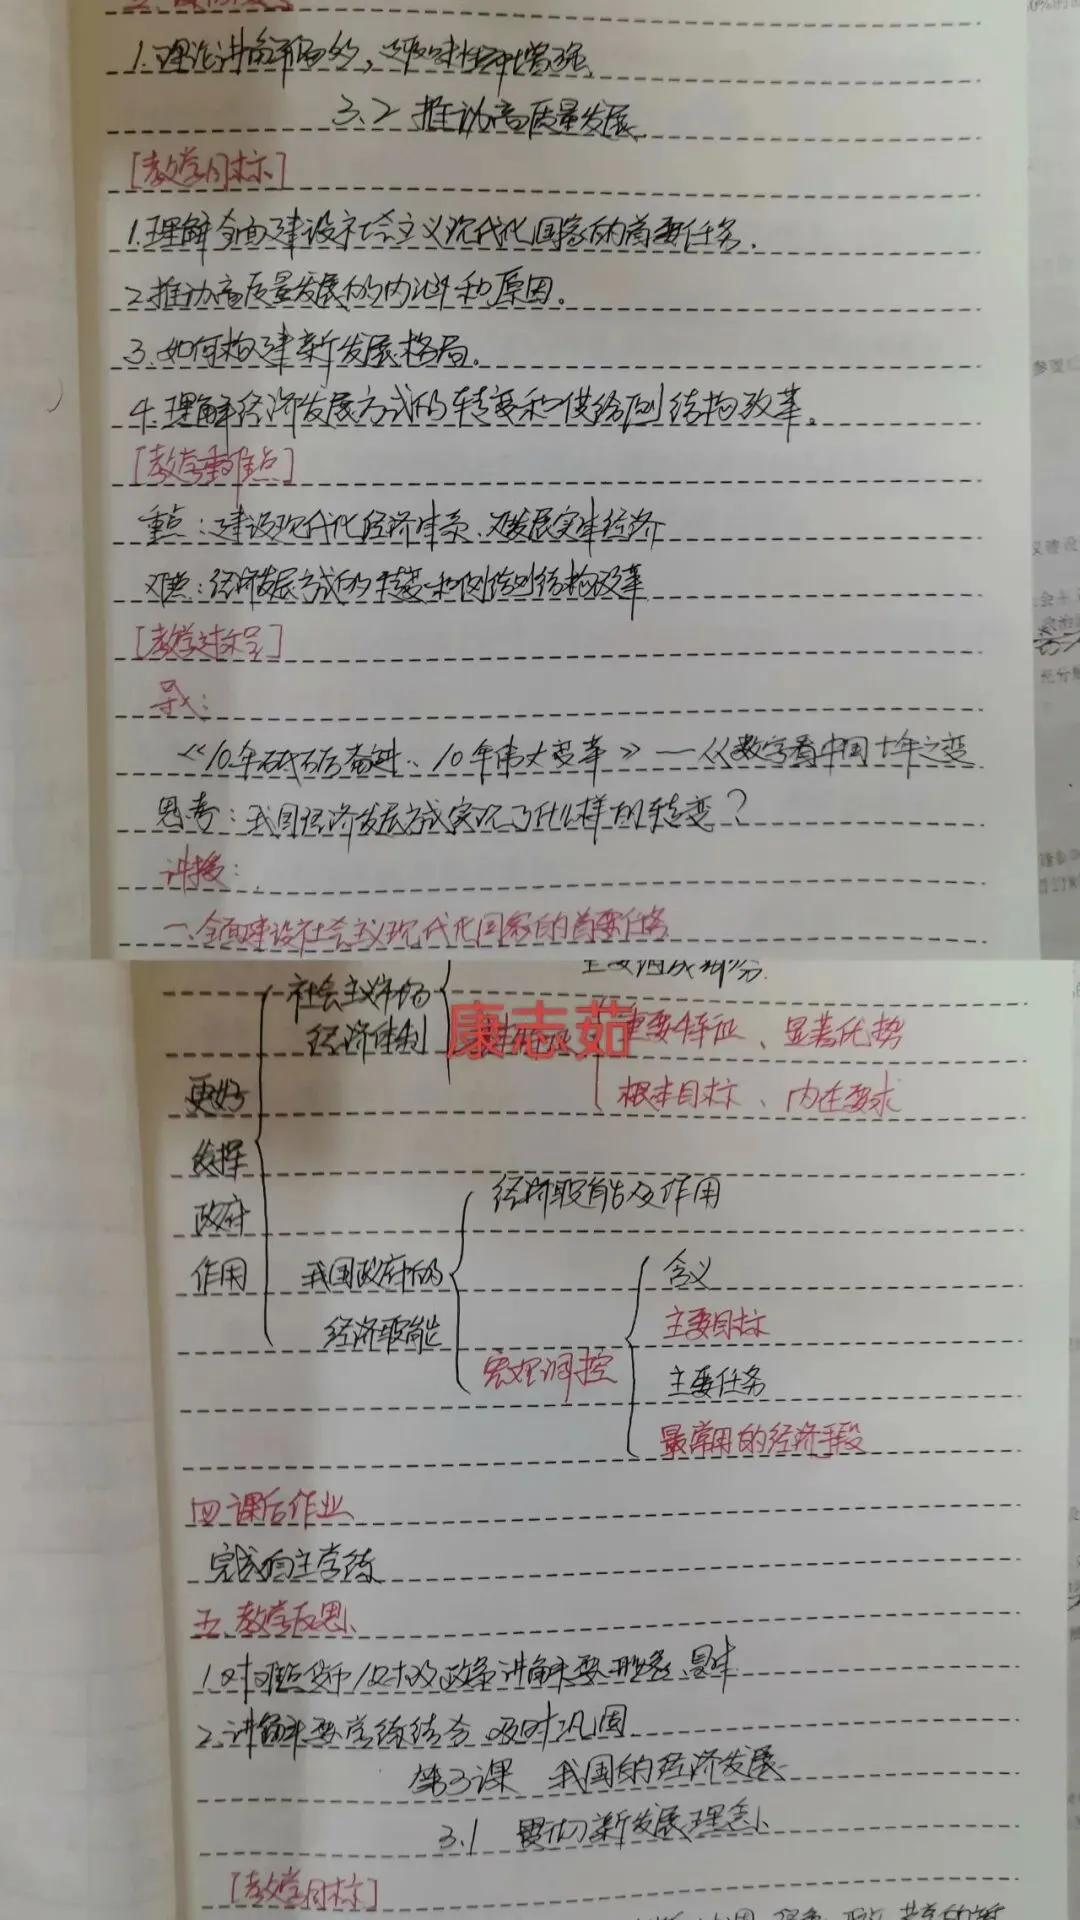 1.理论讲解有面多,趣味性需增强.
3.2 推动高质量发展
[教学目标]
1.理解全面建设社会主义现代化国家的首要任务.
2.推动高质量发展的内涵和原因。
3.如何构建新发展格局。
4.理解经济发展方式的转变和供给侧结构改革。
[教学重难点]
重点:建设现代化经济体系、发展实体经济
难点:经济发展方式的转变和供给侧结构改革
[教学过程]
导入:
《10年砥砺奋进、10年伟大变革》——从数字看中国十年之变
思考:我国经济发展方式实现了什么样的转变?
讲授:
一.全面建设社会主义现代化国家的首要任务
主要组成部分
社会主义市场
经济体制
康志茹
重要特征、显著优势
根本目标、内在要求
更好
发挥
政府
作用
经济职能及作用
我国政府的
经济职能
含义
主要目标
宏观调控
主要任务
最常用的经济手段
四.课后作业
完成自主学练
五.教学反思
1.对难点货币/财政政策讲解要形象、具体
2.讲解要学练结合,及时巩固
第3课 我国的经济发展
3.1 贯彻新发展理念
[教学目标]